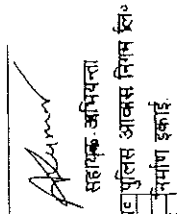 AKumar
सहायक अभियन्ता
पुलिस आवास निगम लि०
निर्माण इकाई.